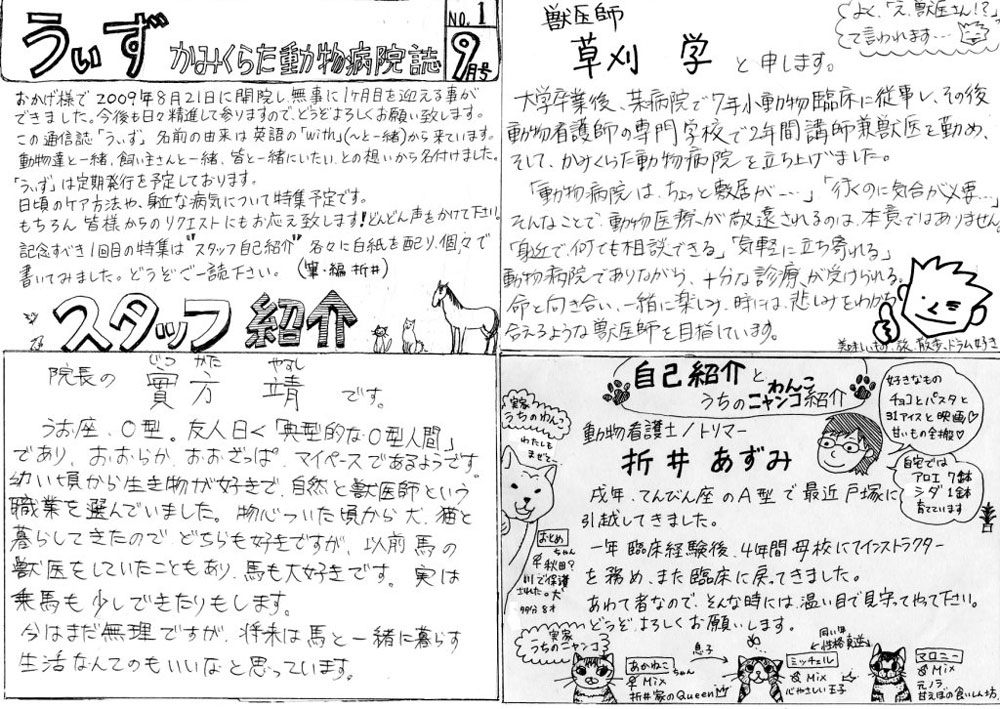 うぃず
かみくらた動物病院誌
NO.1
9月号
おかげ様で2009年8月21日に開院し、無事に1ヶ月目を迎える事が
できました。今後も日々精進して参りますので、どうぞよろしくお願い致します。
この通信誌「うぃず」名前の由来は英語の「with」(〜と一緒)から来ています。
動物達と一緒、飼い主さんと一緒、皆と一緒にいたい、との想いから名付けました。
「うぃず」は定期発行を予定しております。
日頃のケア方法や、身近な病気について特集予定です。
もちろん 皆様からのリクエストにもお応え致します!どんどん声をかけて下さい。
記念すべき1回目の特集は"スタッフ自己紹介"各々に白紙を配り、個々で
書いてみました。どうぞご一読下さい。(筆・編 折井)
スタッフ紹介
よく、「え、獣医さん!?」
って言われます…
獣医師
草刈 学 と申します。
大学卒業後、某病院で7年小動物臨床に従事し、その後
動物看護師の専門学校で2年間講師兼獣医を勤め、
そして、かみくらた動物病院を立ち上げました。
「動物病院は、ちょっと敷居が…」「行くのに気合が必要…」
そんなことで、動物医療が敬遠されるのは、本意ではありません。
「身近で、何でも相談できる」「気軽に立ち寄れる」
動物病院でありながら、十分な診療が受けられる。
命と向き合い、一緒に楽しみ、時には、悲しみをわかち
合えるような獣医師を目指しています。
美味しいもの、旅、散歩、ドラム好き
じつ かた やすし
院長の 實方 靖 です。
うお座、O型。友人曰く「典型的なO型人間」
であり、おおらか、おおざっぱ、マイペースであるようです。
幼い頃から生き物が好きで、自然と獣医師という
職業を選んでいました。物心ついた頃から犬、猫と
暮らしてきたので、どちらも好きですが、以前馬の
獣医をしていたこともあり、馬も大好きです。実は
乗馬も少しできたりもします。
今はまだ無理ですが、将来は馬と一緒に暮らす
生活なんてのもいいなと思っています。
自己紹介と
わんこ
うちのニャンコ紹介
好きなもの
チョコとパスタと
31アイスと映画♡
甘いもの全般♡
自宅では
アロエ 7鉢
シダ 1鉢
育てています
実家
うちのわんこ
わたしも
まぜて…
動物看護士/トリマー
折井 あずみ
戌年、てんびん座のA型で最近戸塚に
引越してきました。
一年臨床経験後、4年間母校にてインストラクター
を務め、また臨床に戻ってきました。
あわて者なので、そんな時には、温い目で見守ってやって下さい。
どうぞ、よろしくお願いします。
おとめちゃん
♀ 秋田?
川で保護
された。犬
実家
うちのニャンコ3
あかねこちゃん
♀ Mix
折井家のQueen
息子
ミッチェル
♂ Mix
心やさしい王子
同い年
性格真逆
マロニー
♂ Mix
元ノラ
甘えほの食いしん坊